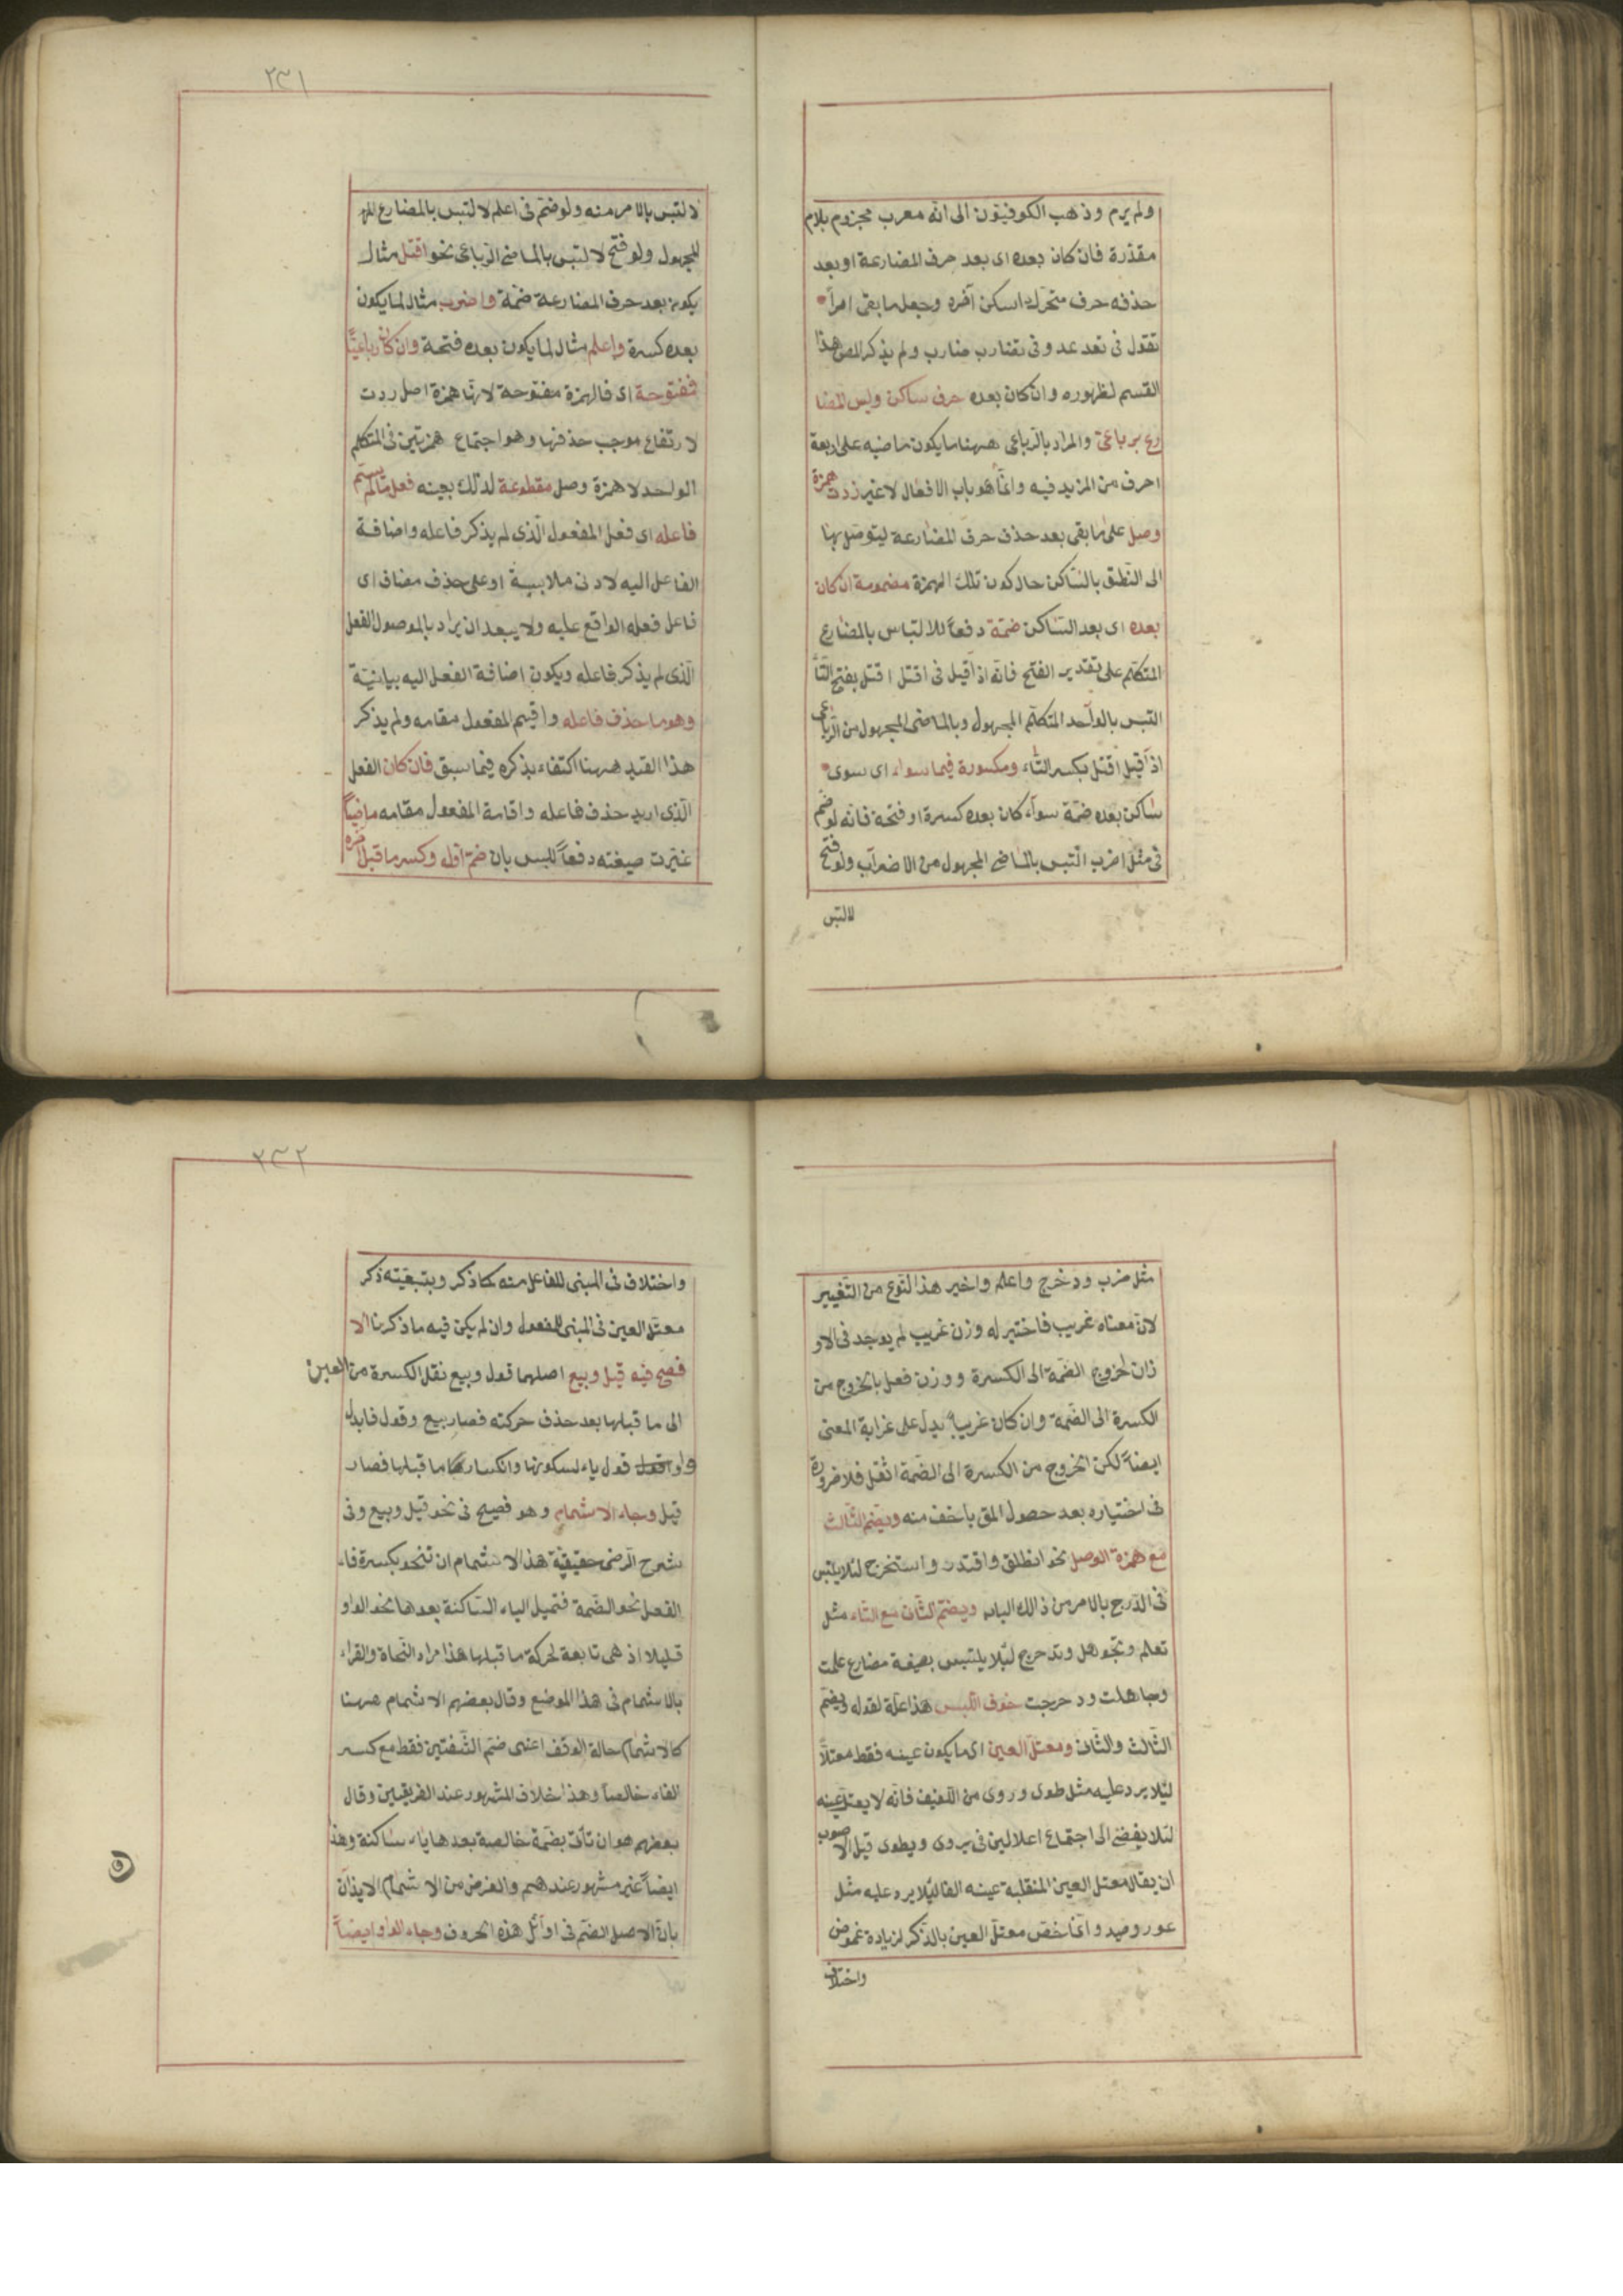 ولم يرم وذهب الكوفيّون الى انّه معرب مجزوم بلام
مقدّرة فان كان بعده اى بعد حرف المضارعة او بعد
حذفه حرف متحرّك اسكن آخره وجعل ما بقى امرأ
تقول فى تعد عد وفى تضارب ضارب ولم يذكر المص هذا
القسم لظهوره وان كان بعده حرف ساكن وليس المضا
رع برباعىّ والمراد بالرّباعى ههنا ما يكون ماضيه على اربعة
احرف من المزيد فيه وانّما هو باب الافعال لا غير زدت همزة
وصل على ما بقى بعد حذف حرف المضارعة ليتوصّل بها
الى النّطق بالسّاكن حال كون تلك الهمزة مضمومة ان كان
بعده اى بعد السّاكن ضمّة دفعاً للالتباس بالمضارع
المتكلّم على تقدير الفتح فانّه اذا قيل فى اقتل اقتل بفتح التّاء
التبس بالواحد المتكلّم المجهول وبالماضى المجهول من الرّباعى
اذا قيل اقتل بكسر التّاء ومكسورة فيما سواه اى سوى
ساكن بعده ضمّة سواء كان بعده كسرة او فتحة فانّه لو ضمّ
فى مثل اضرب التبس بالماضى المجهول من الاضراب ولو فتح
لالتبس
٢٣١
لالتبس بالامر منه ولو ضمّ فى اعلم لالتبس بالمضارع
للمجهول ولو فتح لالتبس بالماضى الرّباعى نحو اقتل مثال
يكون بعد حرف المضارعة ضمّة واضرب مثال لما يكون
بعده كسرة واعلم مثال لما يكون بعده فتحة وان كان رباعيّاً
فمفتوحة اى فالهمزة مفتوحة لانّها همزة اصل ردت
لارتفاع موجب حذفها وهو اجتماع همزتين فى المتكلم
الواحد لا همزة وصل مقطوعة لذلك بعينه فعل ما لم يسمّ
فاعله اى فعل المفعول الّذى لم يذكر فاعله واضافة
الفاعل اليه لادنى ملابسة او على حذف مضاف اى
فاعل فعله الواقع عليه ولا يبعد ان يراد بالموصول الفعل
الّذى لم يذكر فاعله ويكون اضافة الفعل اليه بيانيّة
وهو ما حذف فاعله واقيم المفعول مقامه ولم يذكر
هذا القيد ههنا اكتفاء بذكره فيما سبق فان كان الفعل
الّذى اريد حذف فاعله واقامة المفعول مقامه ماضياً
غيّرت صيغته دفعاً للبس بان ضمّ اوّله وكسر ما قبل آخره
مثل ضرب ودحرج واعلم واختير هذا النّوع من التّغيير
لانّ معناه غريب فاختير له وزن غريب لم يوجد فى الاو
زان لخروج الضّمة الى الكسرة ووزن فعل بالخروج من
الكسرة الى الضّمة وان كان غريبا يدلّ على غرابة المعنى
ايضاً لكن الخروج من الكسرة الى الضمّة اثقل فلا ضرورة
فى اختياره بعد حصول المق باخف منه ويضمّ الثّالث
مع همزة الوصل نحو انطلق واقتدر واستخرج لئلا يلتبس
فى الدّرج بالامر من ذلك الباب ويضمّ الثّانى مع التّاء مثل
تعلم وتجوهل وتدحرج لئلا يلتبس بصيغة مضارع علمت
وجاهلت ودحرجت خوف اللّبس هذا علّة لقوله ويضمّ
الثّالث والثّانى ومعتلّ العين اى ما يكون عينه فقط معتلّاً
لئلا يرد عليه مثل طوى وروى من اللّفيف فانّه لا يعتل عينه
لئلا يفضى الى اجتماع اعلالين فى يروى ويطوى قيل الاصوب
ان يقال معتل العين المنقلبة عينه الفا لئلا يرد عليه مثل
عور وصيد وانّما خصّ معتلّ العين بالذّكر لزيادة غموض
واختلاف
٢٣٢
واختلاف فى المبنى للفاعل منه كما ذكر وبتبعيّته ذكر
معتلّ العين فى المبنى للمفعول وان لم يكن فيه ما ذكرنا الا
فصح فيه قيل وبيع اصلهما قول وبيع نقل الكسرة من العين
الى ما قبلها بعد حذف حركته فصار بيع وقول فابدل
واو قول ياء لسكونها وانكسار ما قبلها فصار
قيل وجاء الاشمام وهو فصيح فى نحو قيل وبيع وفى
شرح الرّضى حقيقة هذا الاشمام ان تنحو بكسرة فاء
الفعل نحو الضّمة فتميل الياء السّاكنة بعدها نحو الواو
قليلا اذ هى تابعة لحركة ما قبلها هذا مراد النّحاة والقراء
بالاشمام فى هذا الموضع وقال بعضهم الاشمام ههنا
كالاشمام حالة الوقف اعنى ضمّ الشّفتين فقط مع كسر
الفاء خالصاً وهذا خلاف المشهور عند الفريقين وقال
بعضهم هو ان تأتى بضمّة خالصة بعدها ياء ساكنة وهذا
ايضاً غير مشهور عندهم والغرض من الاشمام الايذان
بانّ الاصل الضّم فى اوائل هذه الحروف وجاء الواو ايضاً